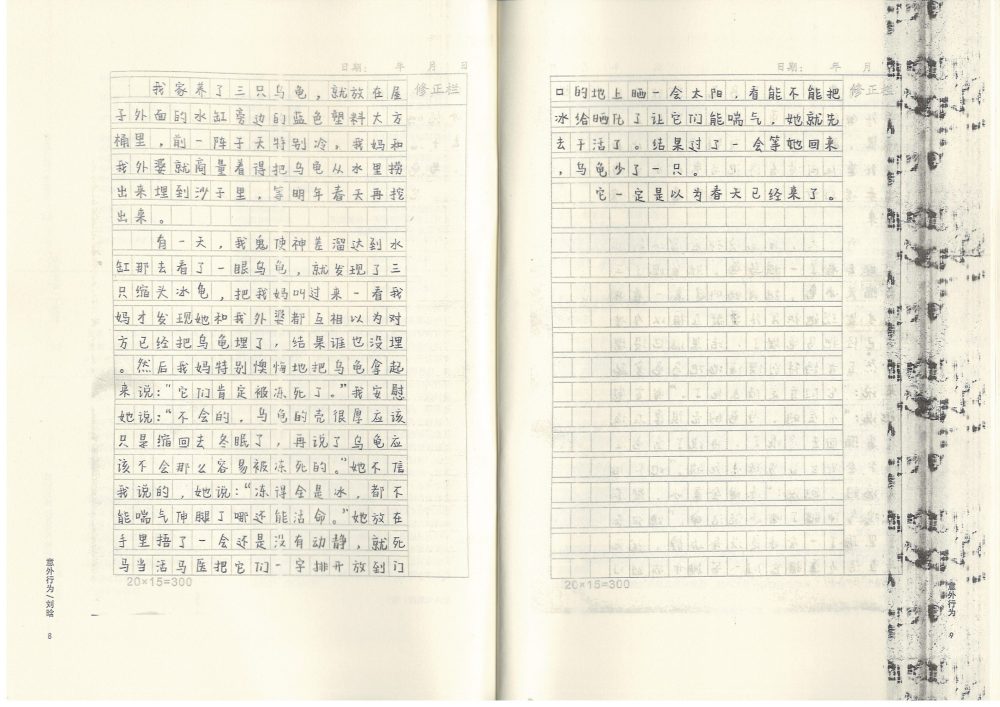 日期： 年 月 日
修正栏
我家养了三只乌龟，就放在屋
子外面的水缸旁边的蓝色塑料大方
桶里，前一阵子天特别冷，我妈和
我外婆就商量着得把乌龟从水里捞
出来埋到沙子里，等明年春天再挖
出来。
有一天，我鬼使神差溜达到水
缸那去看了一眼乌龟，就发现了三
只缩头冰龟，把我妈叫过来一看我
妈才发现她和我外婆都互相以为对
方已经把乌龟埋了，结果谁也没埋
。然后我妈特别懊悔地把乌龟拿起
来说：“它们肯定被冻死了。”我安慰
她说：“不会的，乌龟的壳很厚应该
只是缩回去冬眠了，再说了乌龟应
该不会那么容易被冻死的。”她不信
我说的，她说：“冻得全是冰，都不
能喘气伸腿了哪还能活命。”她放在
手里捂了一会还是没有动静，就死
马当活马医把它们一字排开放到门
20×15=300
意外行为/刘晗
8
日期： 年 月
修正栏
口的地上晒一会太阳，看能不能把
冰给晒化了让它们能喘气，她就先
去干活了。结果过了一会等她回来
，乌龟少了一只。
它一定是以为春天已经来了。
20×15=300
意外行为
9